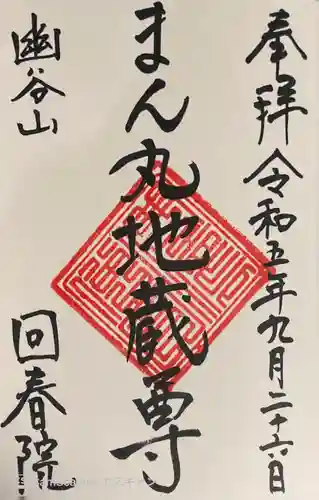 奉拝 令和五年九月二十六日
まん丸地蔵尊
幽谷山
回春院